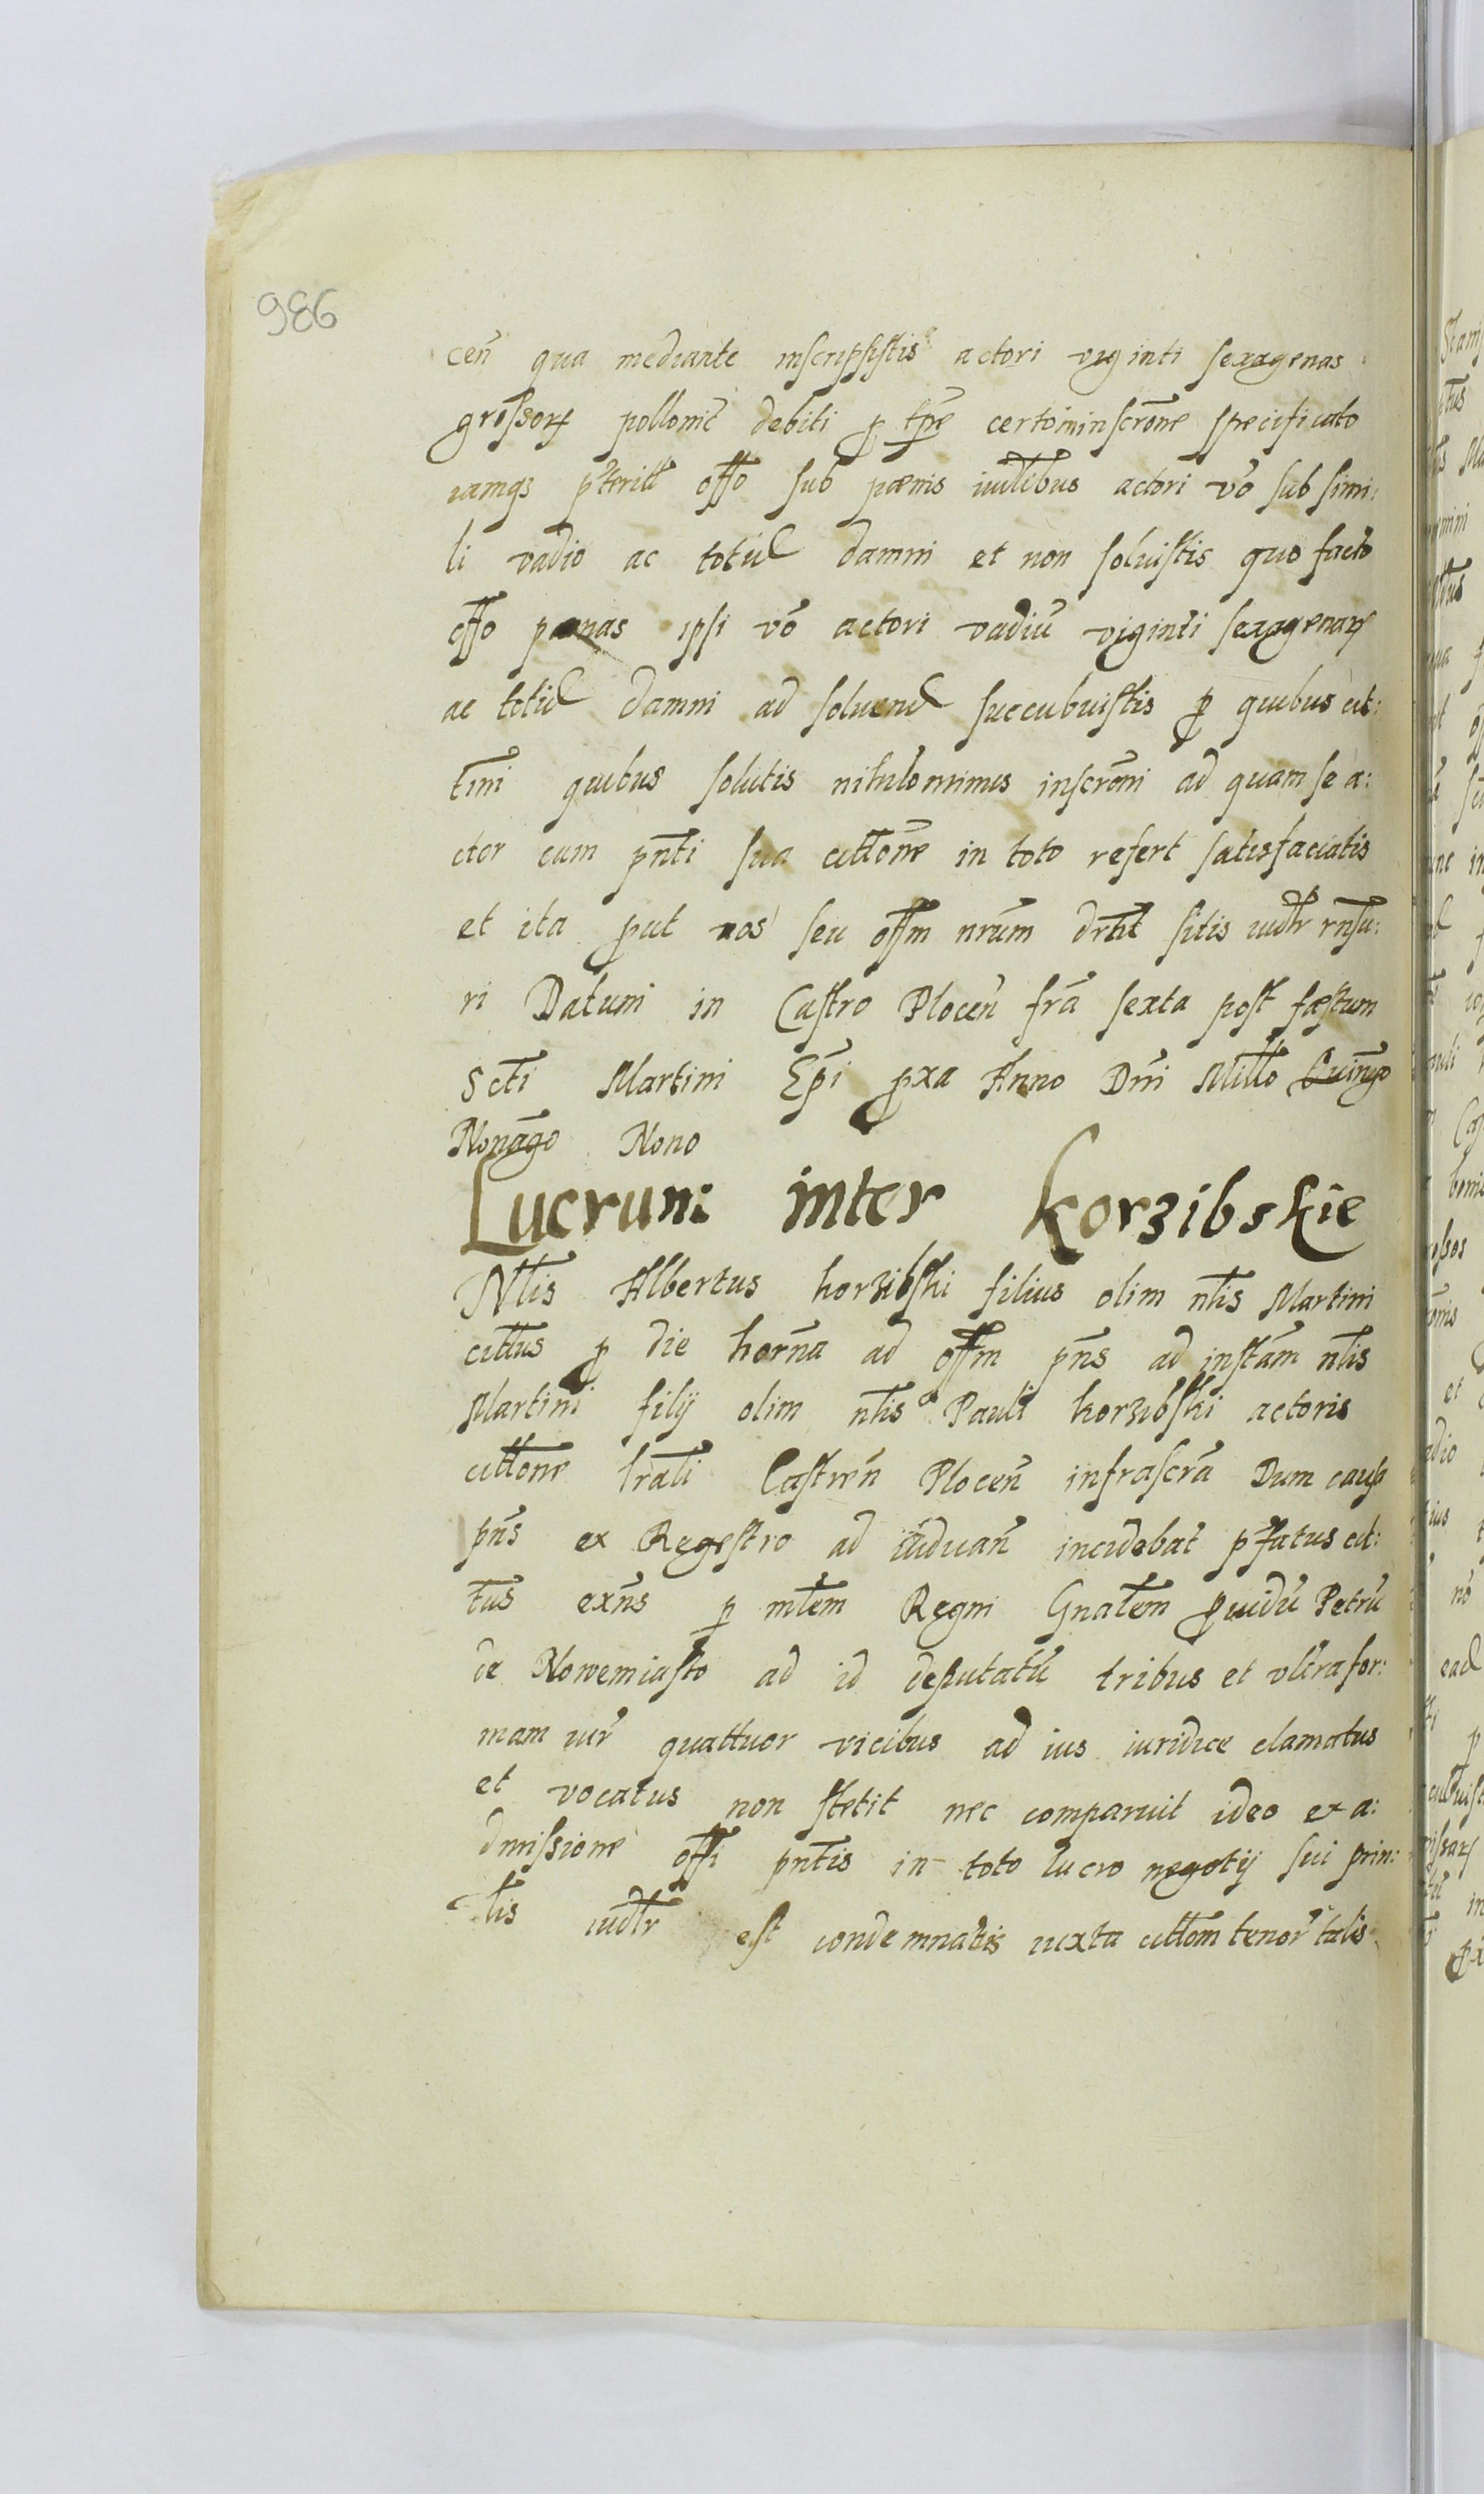 986
cen̄ qua mediante inscripsistis actori viginti sexagenas
grossorꝝ pollonic̄ debiti ꝓ tp̄re certo in inscrōne specificato
iamqꝫ p̄terill offo sub pœnis iudlibus actori vō sub simi:
li vadio ac totid damni et non solvistis quo facto
offo pœnas ipsi vō actori vadiū viginti sexagenarꝝ
ac totid damni ad solvend succubuistis ꝓ quibus cit:
tini quibus solutis nihilominus inscrōni ad quam se a:
ctor cum pn̄ti sua cittōne in toto refert satisfaciatis
et ita put nos seu offm nrūm drīt sitis iudlr rn̄su:
ri Datum in Castro Plocen̄ frā sexta post fæstum
Scti Martini Ep̄i ꝓxa Anno Dn̄i Millo Quingo
Nonāgo Nono
Lucrum inter Korzibskie
Nlis Albertus korzibski filius olim nlis Martini
cittus ꝓ die horn̄a ad offm pn̄s ad instām nlis
Martini filij olim nlis Pauli korzibski actoris
cittōne lrāli Castren̄ Plocen̄ infrascrā Dum causa
pn̄s ex Regestro ad iudican̄ incidebat p̄fatus cit:
tus exn̄s ꝑ mlem Regni Gnalem ꝓuidū Petrū
de Nowemiasto ad id deputatū tribus et vltra for:
mam iur̄ quattuor vicibus ad ius iuridice clamatus
et vocatus non stetit nec comparuit ideo ex a:
dmissione offi pn̄tis in toto lucro negotij sui prin:
lis iudlr est condemnatis iuxta cittōm tenor̄ talis